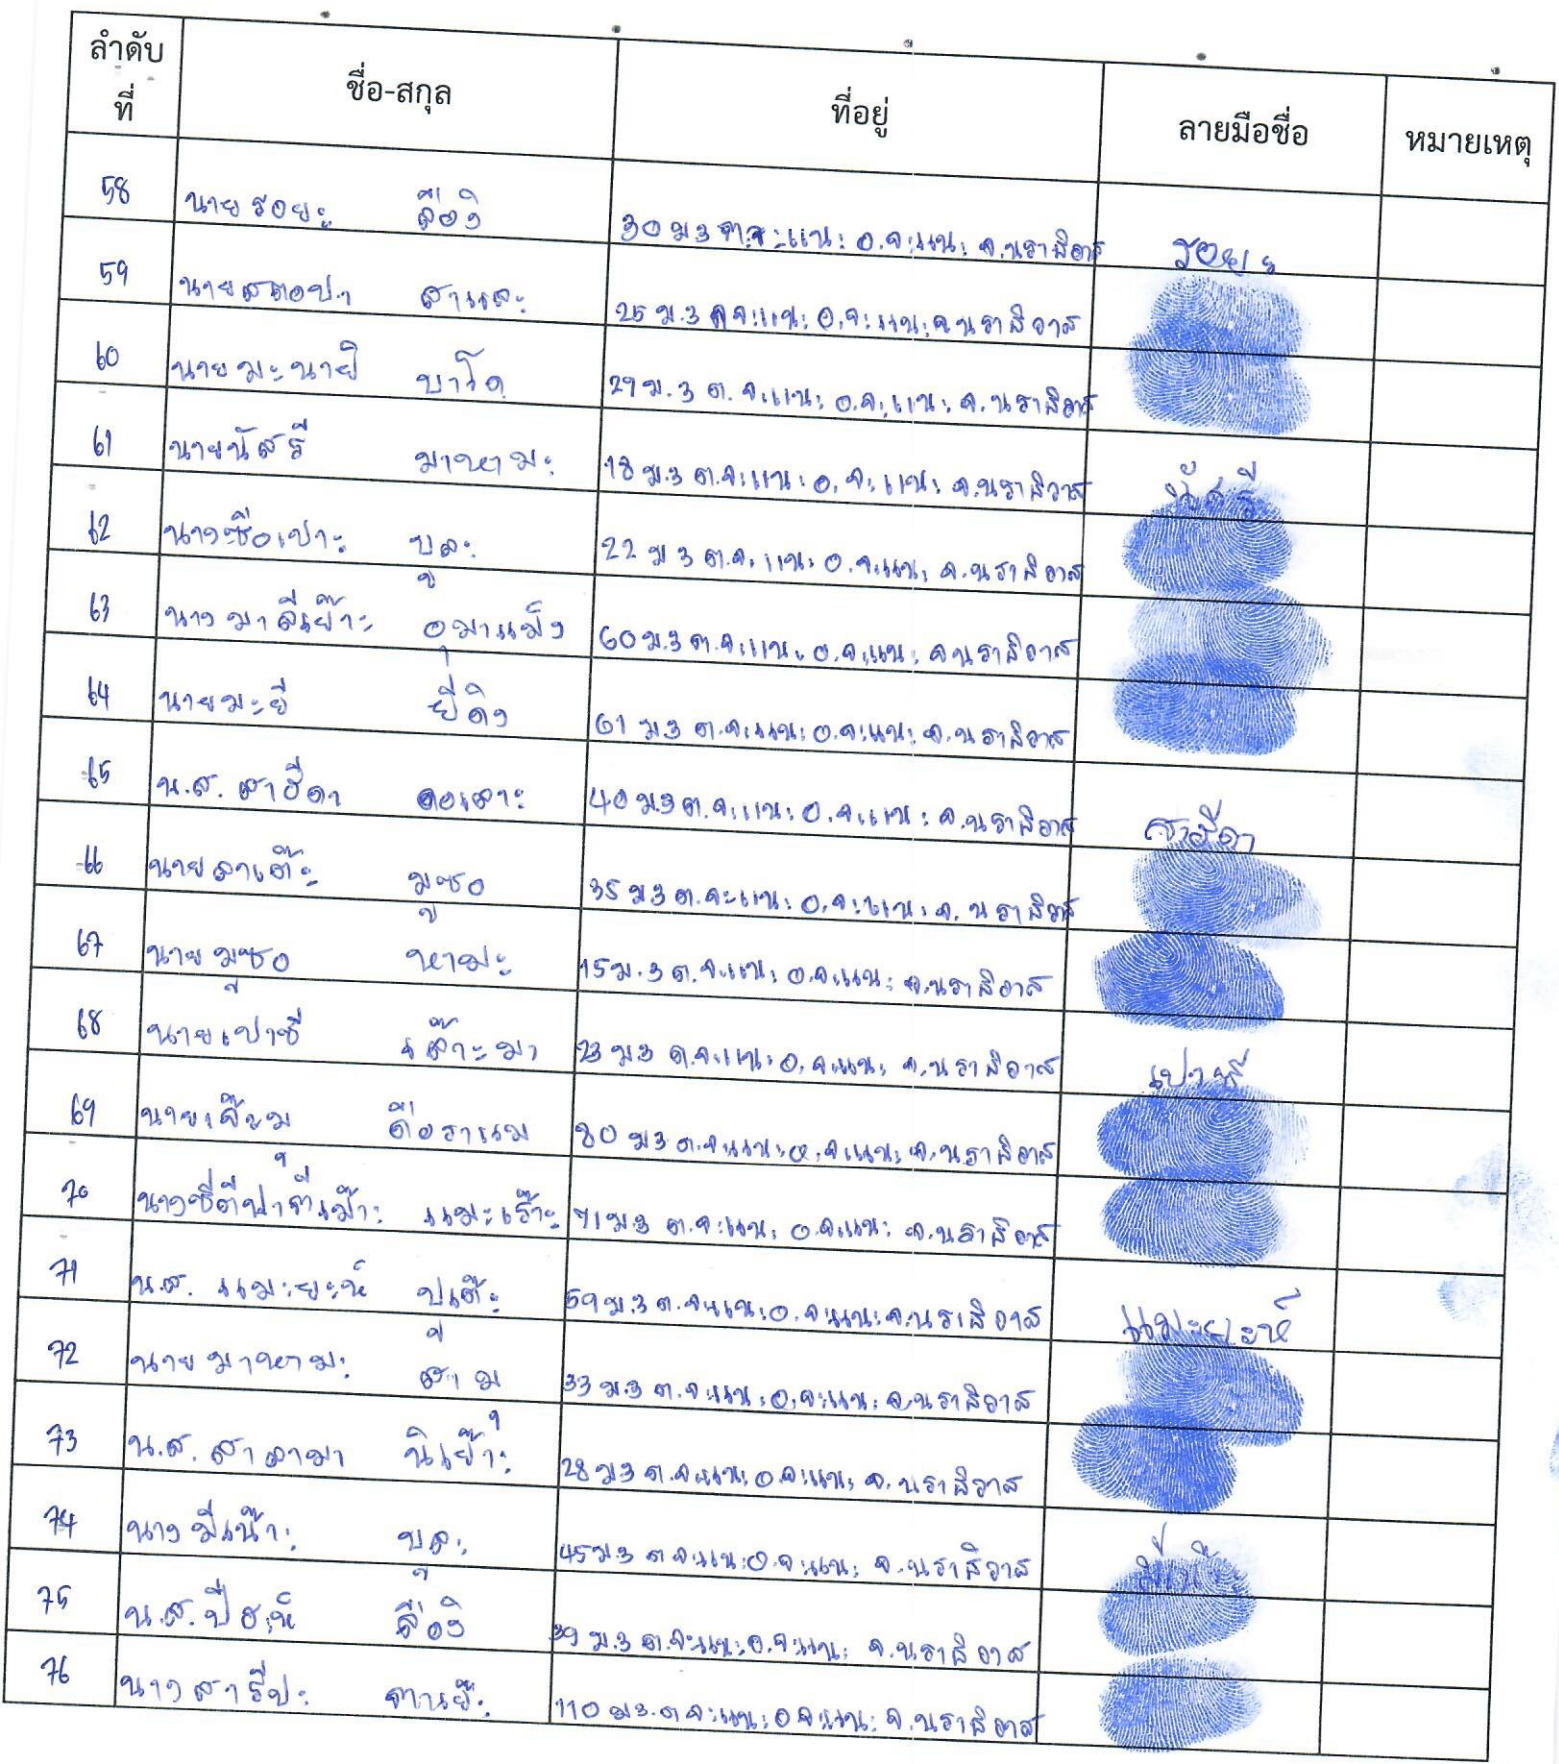 ลำดับที่ ชื่อ-สกุล ที่อยู่ ลายมือชื่อ หมายเหตุ
58 นายรอยะ ลือิง 30 ม 3 ต.จะแนะ อ.จะแนะ จ.นราธิวาส รอยะ
59 นายสตอปา สาและ 25 ม.3 ต.จะแนะ อ.จะแนะ จ.นราธิวาส
60 นายมะนายิ บาโด 29 ม.3 ต.จะแนะ อ.จะแนะ จ.นราธิวาส
61 นายนัสรี มาหามะ 18 ม.3 ต.จะแนะ อ.จะแนะ จ.นราธิวาส นัสรี
62 นางซือเปาะ บูละ 22 ม 3 ต.จะแนะ อ.จะแนะ จ.นราธิวาส
63 นางมาลีเย๊าะ อุมาแม็ง 60 ม.3 ต.จะแนะ อ.จะแนะ จ.นราธิวาส
64 นายมะยี ยี่ดิง 61 ม.3 ต.จะแนะ อ.จะแนะ จ.นราธิวาส
65 น.ส. สาฮีดา ดอเลาะ 40 ม.3 ต.จะแนะ อ.จะแนะ จ.นราธิวาส สาฮีดา
66 นายลาเต๊ะ มูซอ 35 ม.3 ต.จะแนะ อ.จะแนะ จ.นราธิวาส
67 นายมูซอ หามะ 15 ม.3 ต.จะแนะ อ.จะแนะ จ.นราธิวาส
68 นายเปาซี เล๊าะมา 23 ม.3 ต.จะแนะ อ.จะแนะ จ.นราธิวาส เปาซี
69 นายเจ๊ะมุ ดือราแม 80 ม.3 ต.จะแนะ อ.จะแนะ จ.นราธิวาส
70 นางซีตีฟาตีเม๊าะ แมะเร๊าะ 71 ม.3 ต.จะแนะ อ.จะแนะ จ.นราธิวาส
71 น.ส. แมะยะห์ ปูเต๊ะ 59 ม.3 ต.จะแนะ อ.จะแนะ จ.นราธิวาส แมะยะห์
72 นายมาหามะ สามุ 33 ม.3 ต.จะแนะ อ.จะแนะ จ.นราธิวาส
73 น.ส. สาลามา นิเย๊าะ 28 ม.3 ต.จะแนะ อ.จะแนะ จ.นราธิวาส
74 นางมีเน๊าะ บูละ 45 ม.3 ต.จะแนะ อ.จะแนะ จ.นราธิวาส
75 น.ส. ปือะห์ ลือิง 39 ม.3 ต.จะแนะ อ.จะแนะ จ.นราธิวาส
76 นางสารีปะ 110 ม.3 ต.จะแนะ อ.จะแนะ จ.นราธิวาส